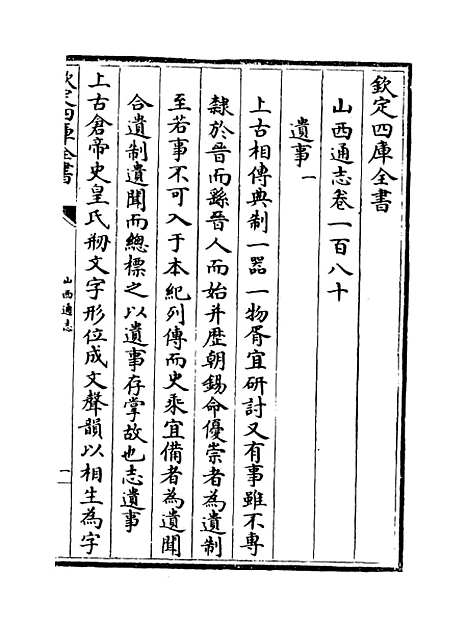 欽定四庫全書
山西通志卷一百八十
遺事一
上古相傳典制一器一物胥宜研討又有事雖不專
隸於晉而繇晉人而始并歴朝錫命優崇者為遺制
至若事不可入于本紀列傳而史乘宜備者為遺聞
合遺制遺聞而總標之以遺事存掌故也志遺事
上古倉帝史皇氏剏文字形位成文聲韻以相生為字
欽定四庫全書
山西通志
一